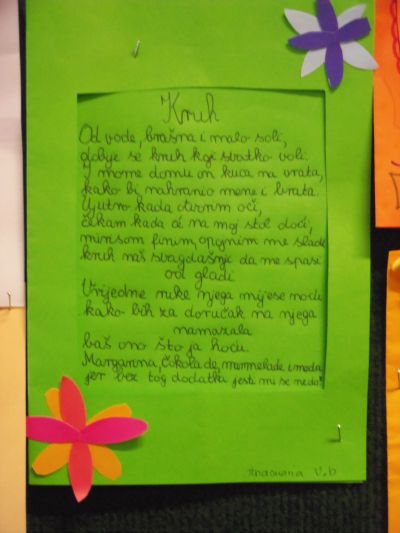 Kruh
Od vode, brašna i malo soli,
dobije se kruh koji svatko voli.
U mome domu on kuca na vrata,
kako bi nahranio mene i brata.
Ujutro kada otvorim oči,
čekam kada će na moj stol doći,
mirisom finim, opojnim me sladi
kruh naš svagdašnje da me spasi
od gladi
Vrijedne ruke njega mijese noću
kako bih za doručak na njega
namazala
baš ono što ja hoću.
Margarina, čokolade, mermelade i meda
jer bez tog dodatka jesti mi se neda!
V.b